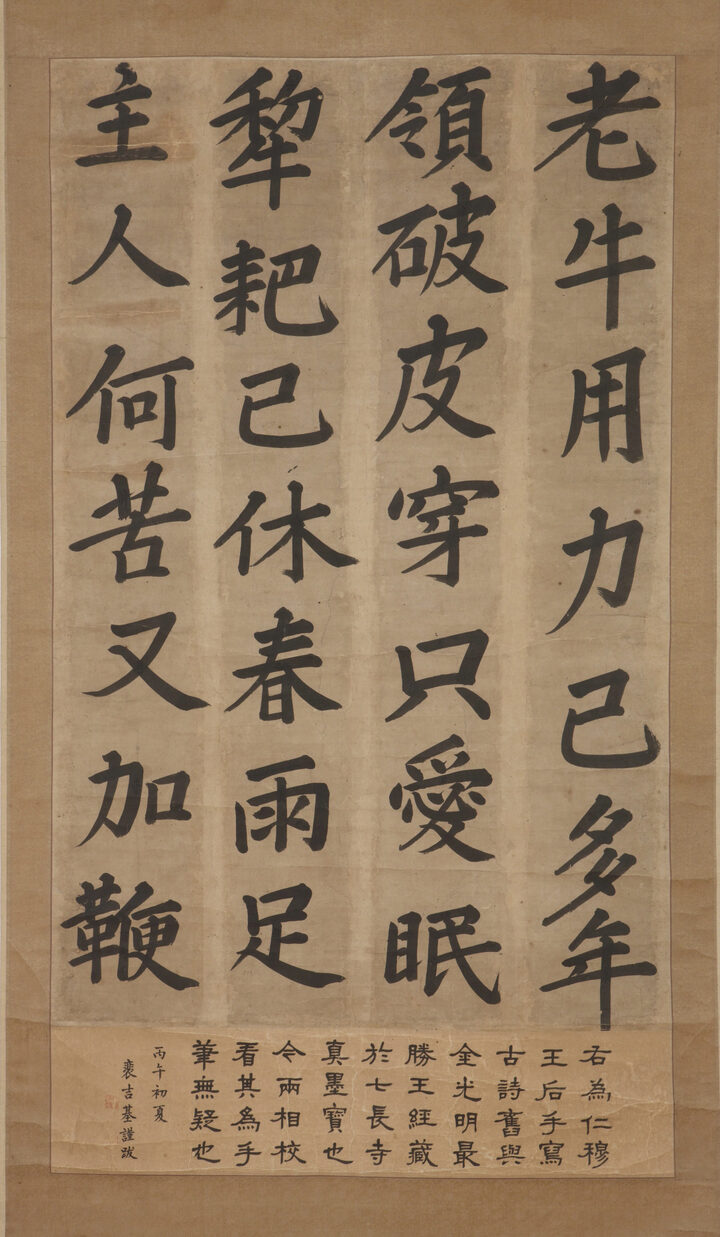 老牛用力已多年
領破皮穿只愛眠
犂耙已休春雨足
主人何苦又加鞭
右為仁穆
王后手寫
古詩舊與
金光明最
勝王經藏
於七長寺
真墨寶也
今兩相校
看其為手
筆無疑也
丙午初夏
裵吉基謹跋